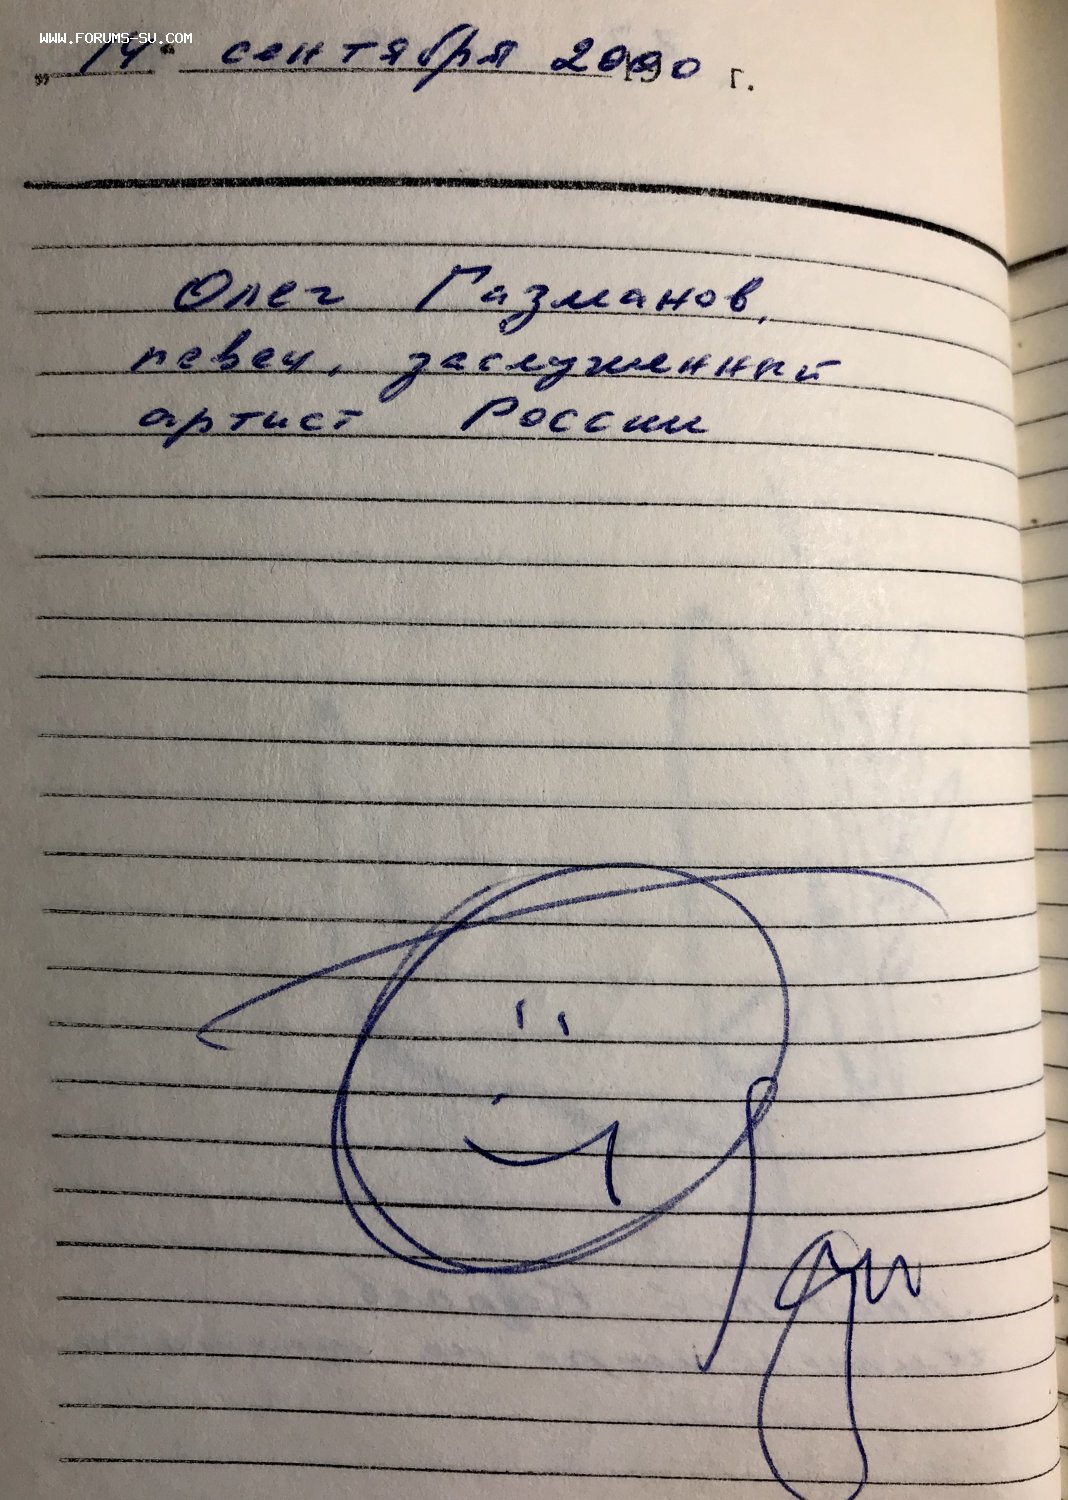 WWW.FORUMS-SU.COM
„14“ сентября 2000 г.
Олег Газманов,
певец, заслуженный
артист России